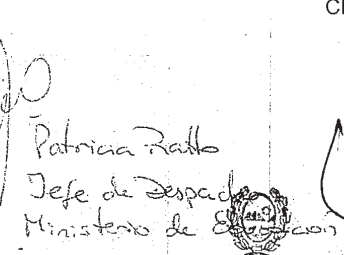 Cl
Patricia Ratto
Jefe de Despacho
Ministerio de Educación